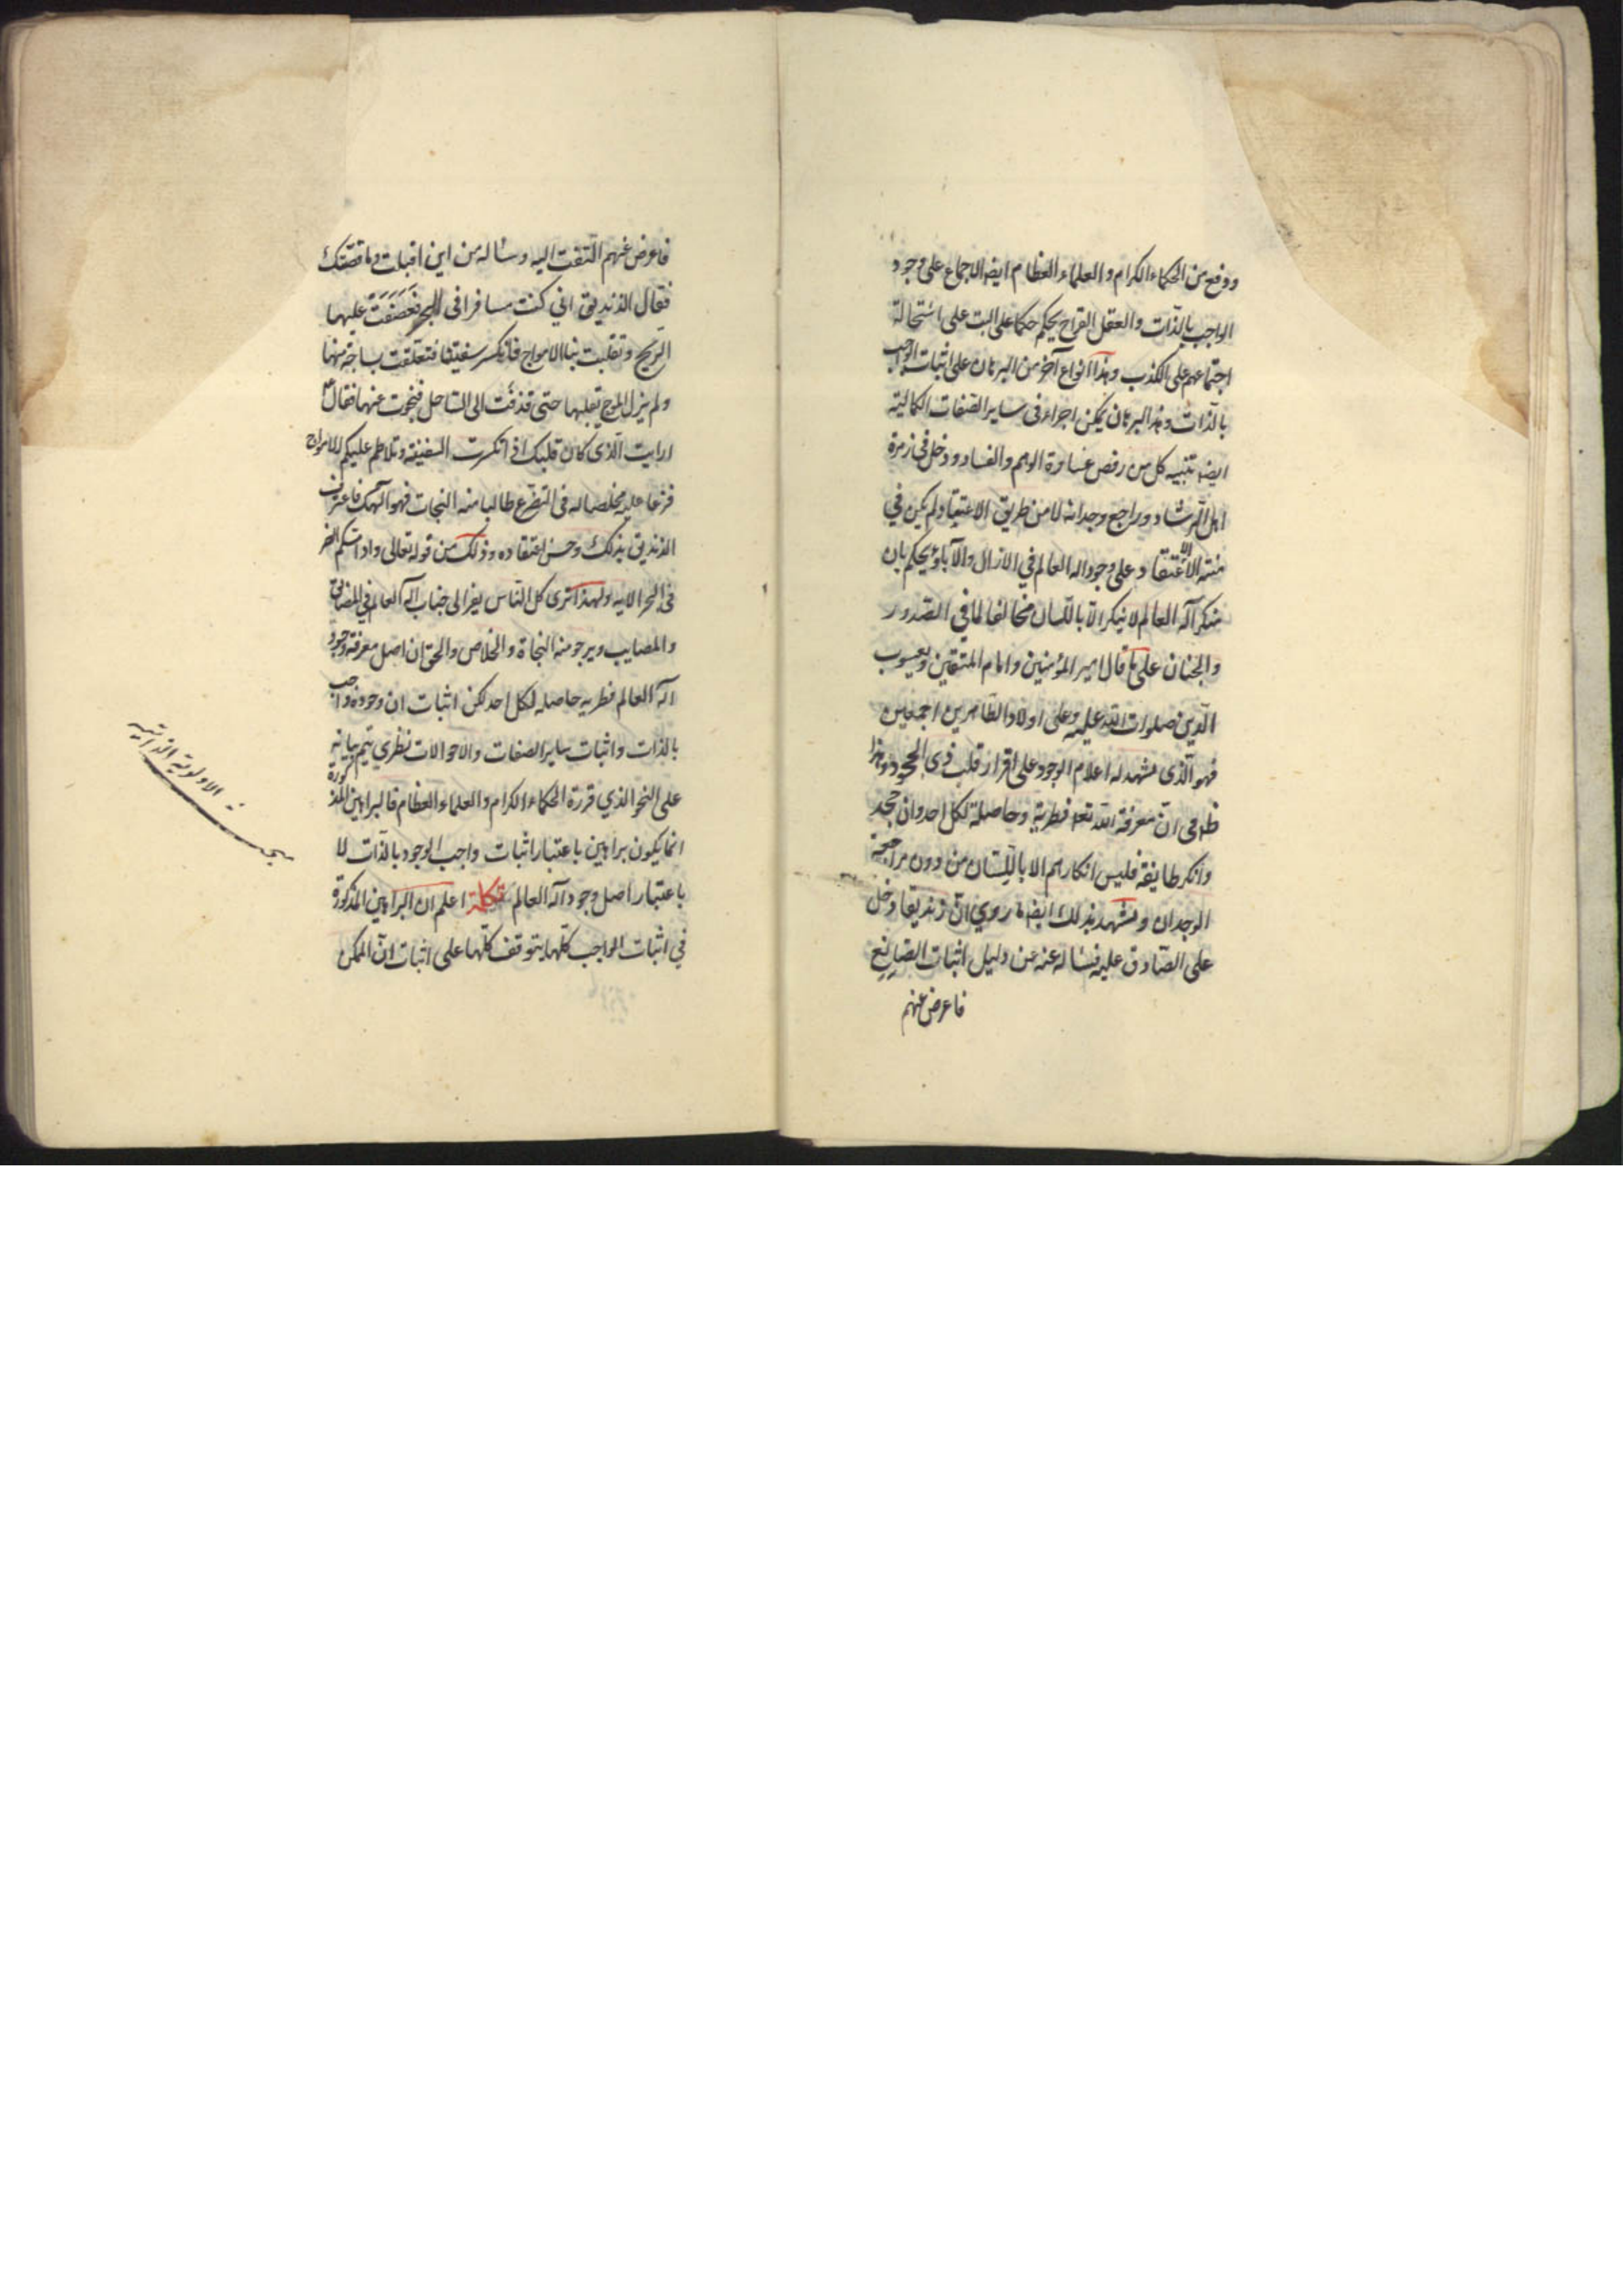 ووقع من الحكماء الكرام والعلماء العظام ايضا الاجماع على وجود
الواجب بالذات والعقل القراح يحكم حكما على البت على استحالة
اجتماعهم على الكذب وهذا انواع آخر من البرهان على اثبات الواجب
بالذات وهذا البرهان يمكن اجراءه فى ساير الصفات الكمالية
ايضا تنبيه كل من رفض غساوة الوهم والفساد ودخل فى زمرة
اهل الرشاد وراجع وجدانه لا من طريق الاعتقاد ولم يكن في
الاعتقاد على وجود اله العالم في الازال والآباد يحكم بان
منكر آله العالم لا ينكر الا باللسان مخالفا لما في الصدور
والجنان على ما قال امير المؤمنين وامام المتقين ويعسوب
الدين صلوات الله عليه وعلى اولاده الطاهرين اجمعين
فهو الذى تشهد له اعلام الوجود على اقرار قلب ذى الجحود وهذا
ظاهر فى ان معرفة الله تعه فطرية وحاصلة لكل احد وان جحد
وانكر طايفة فليس انكارهم الا باللسان من دون مراجعة
الوجدان ويشهد بذلك ايضا ما روي ان زنديقا دخل
على الصادق عليه فساله عنه عن دليل اثبات الصانع
فاعرض عنهم
فاعرض عنهم التفت اليه وساله من اين اقبلت وما قصتك
فقال الزنديق اني كنت مسافرا فى البحر فعصفت عليها
الريح وتقلبت بنا الامواج فانكسر سفينتنا فتعلقت بساجة منها
ولم يزل الموج تقلبها حتى قذفت الى الساحل فنجوت عنها فقال ع
ارايت الذى كان قلبك اذ انكسرت السفينة وتلاطم عليكم الامواج
فزعا عليه مخلصا له فى التضرع طالبا منه النجات فهو الهك فاعترف
الزنديق بذلك وحسن اعتقاده وذلك من قوله تعالى واذا مسكم الضر
فى البحر الايه ولهذا ترى كل الناس يفز الى جناب اله العالم في المضايق
والمصايب ويرجو منه النجاة والخلاص والحق ان اصل معرفة وجود
آله العالم فطريه حاصله لكل احد لكن اثبات ان وجوده واجب
بالذات واثبات ساير الصفات والاحوالات نظري يتم بيانه
على النحو الذي قررة الحكماء الكرام والعلماء العظام فالبراهين المذكورة
انما يكون براهين باعتبار اثبات واجب الوجود بالذات لا
باعتبار اصل وجود آله العالم تكملة اعلم ان البراهين المذكورة
في اثبات الواجب كلها يتوقف كلها على اثبات ان الممكن
الاولوية الذاتية